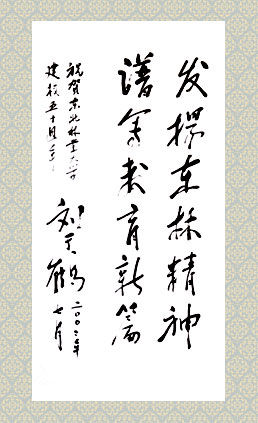 发揚东林精神
谱写教育新篇
祝賀东北林業大学
建校五十周年
刘于鹤
二〇〇二年
七月